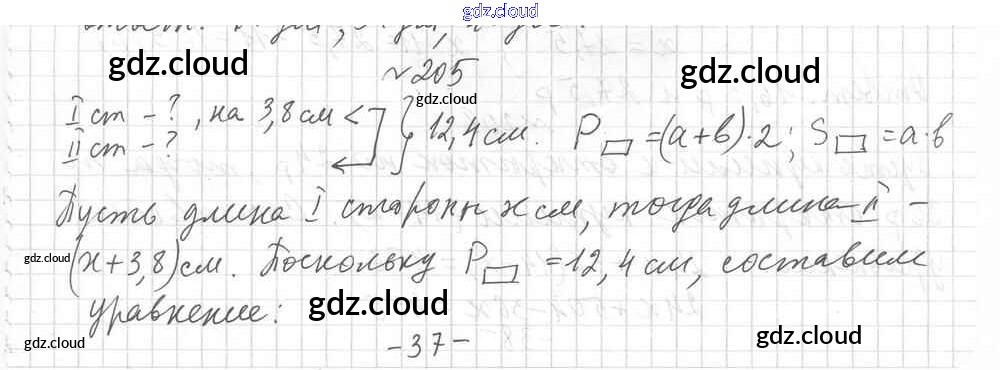 gdz.cloud
gdz.cloud
№205
gdz.cloud
gdz.cloud
I ст - ?, на 3,8 см < } 12,4 см. P▭=(a+b)·2; S▭=a·b
II ст - ?
Пусть длина I стороны x см, тогда длина II -
gdz.cloud (x+3,8) см. Поскольку P▭=12,4 см, составим
уравнение: gdz.cloud
gdz.cloud
gdz.cloud
-37-